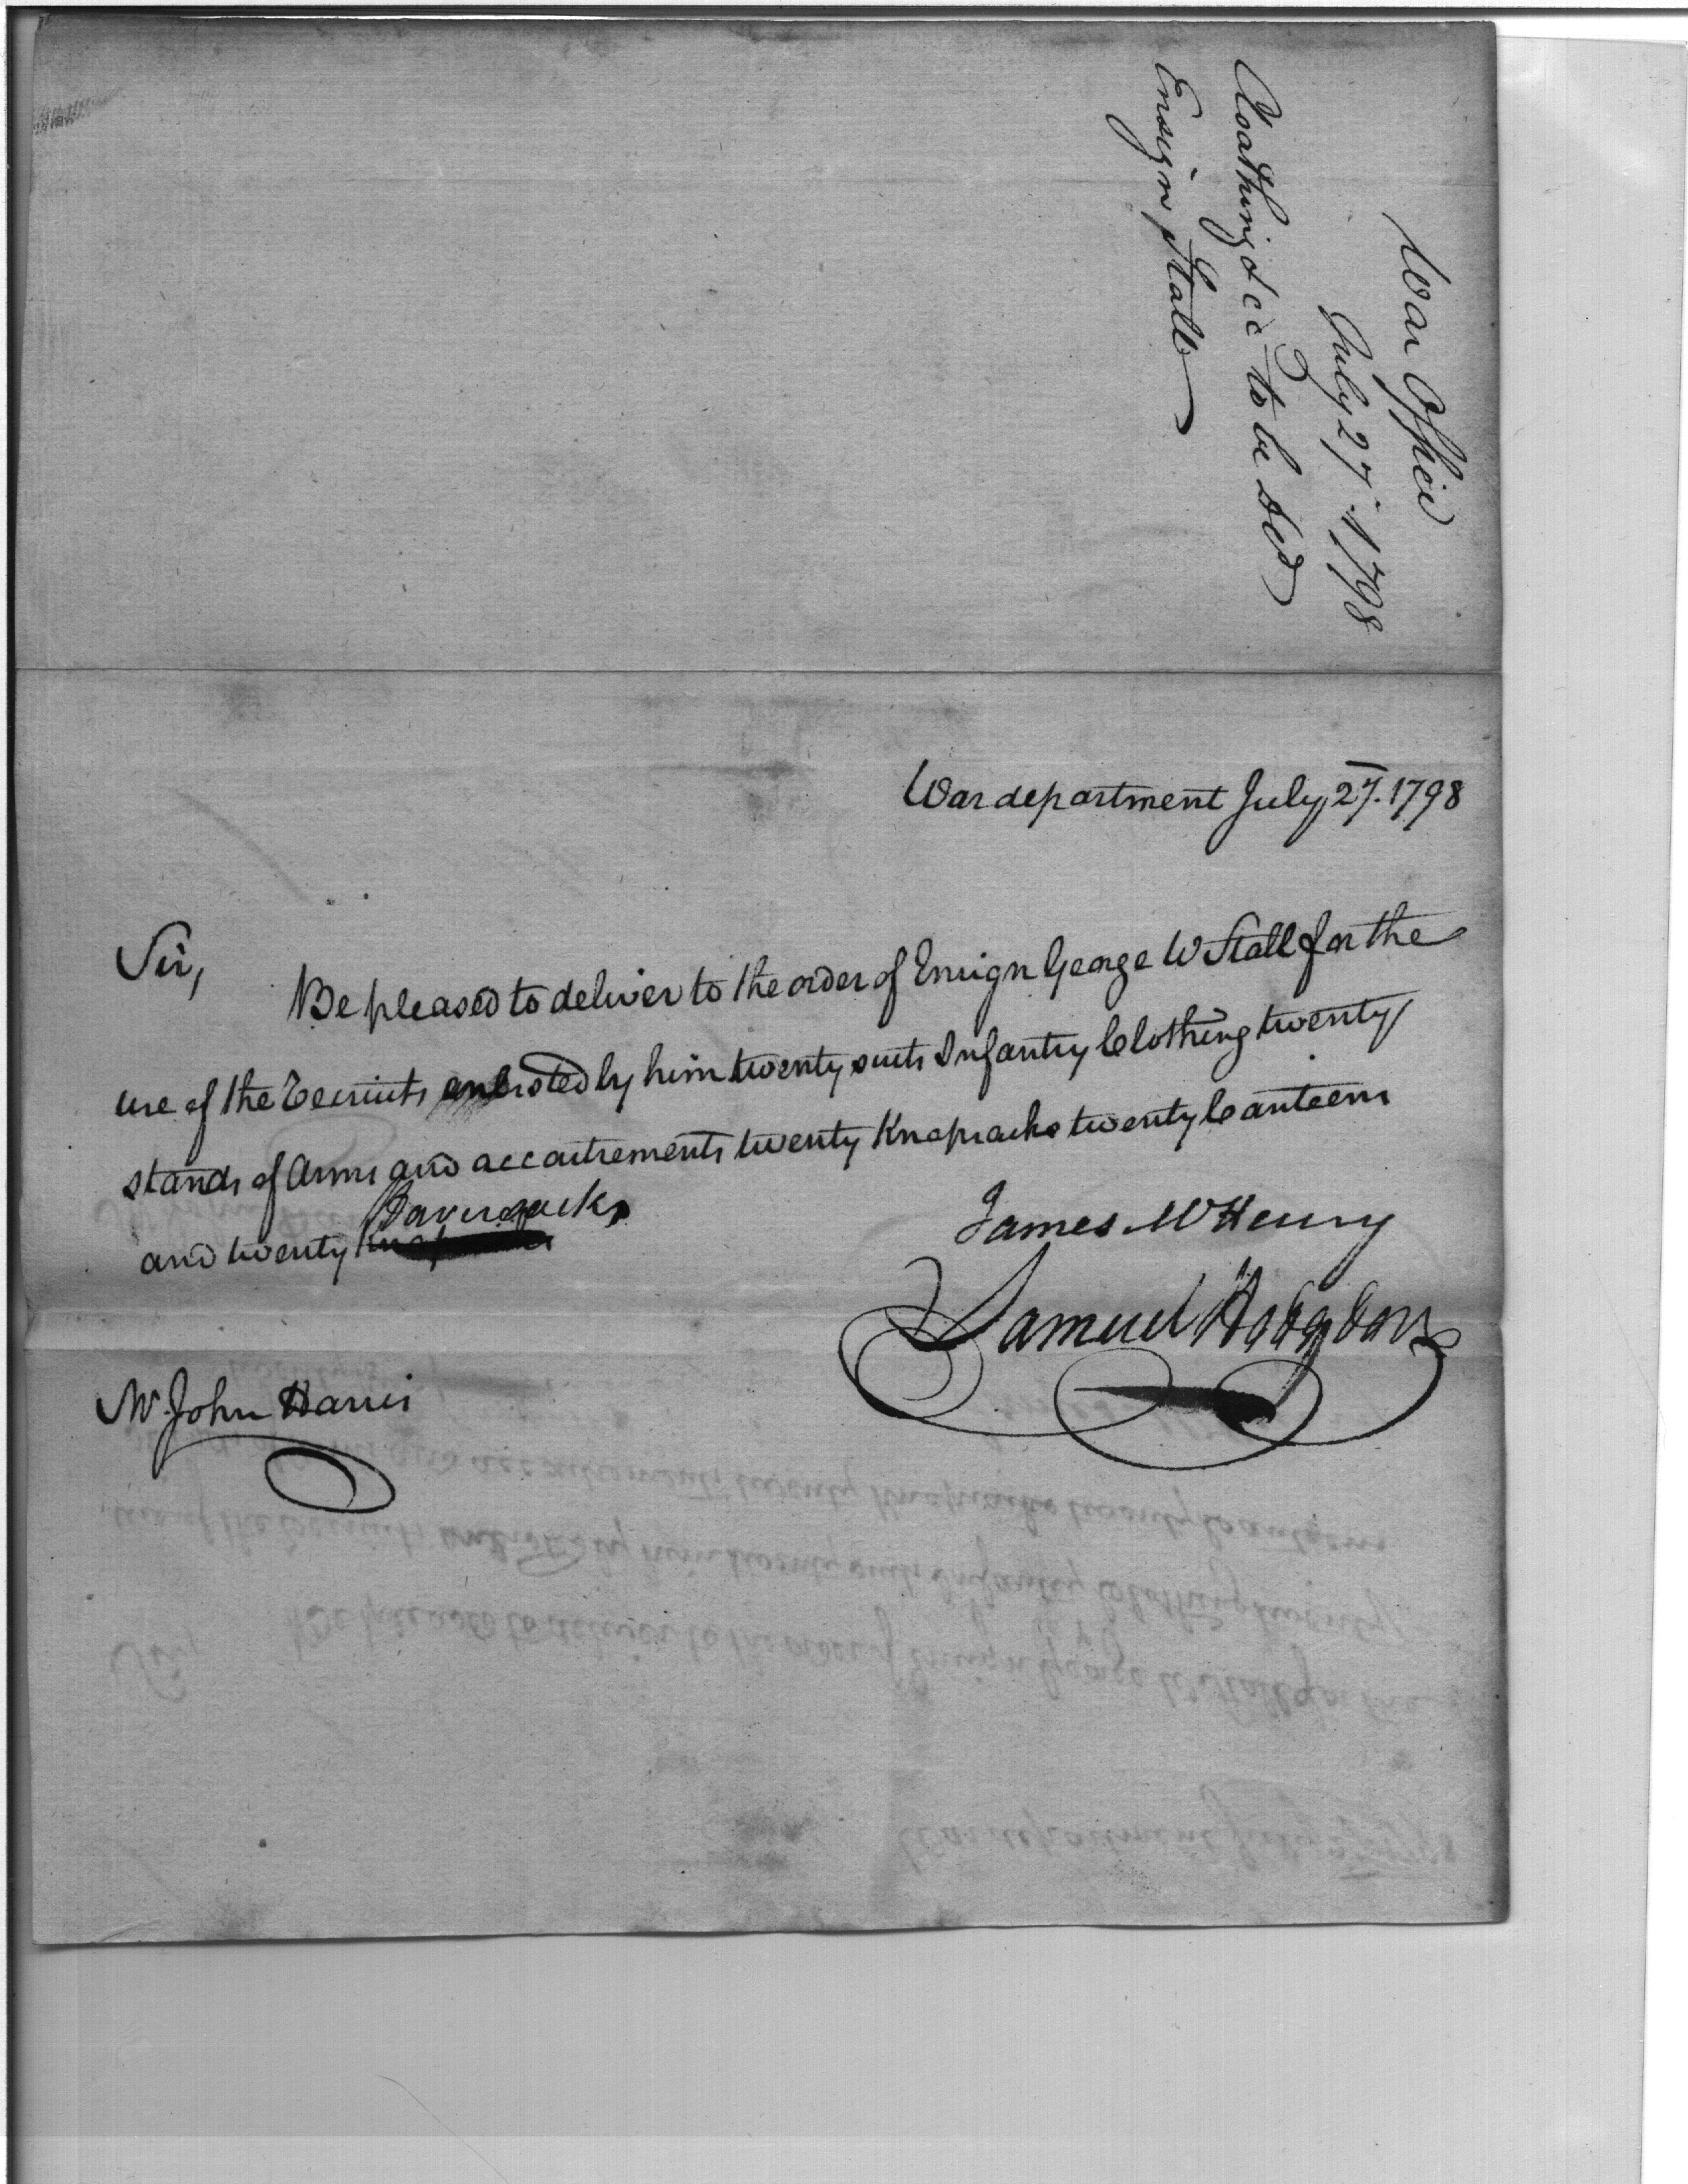 War Office
July 27. 1798
Cloathing &cc to be del
Ensign Stall
War department July 27. 1798
Sir,
Be pleased to deliver to the order of Ensign George W Stall for the
use of the recruits enlisted by him twenty suits Infantry Clothing twenty
stands of Arms and accoutrements twenty Knapsacks twenty Canteens
Haversacks
and twenty
James McHenry
Samuel Hodgdon
Mr. John Harris